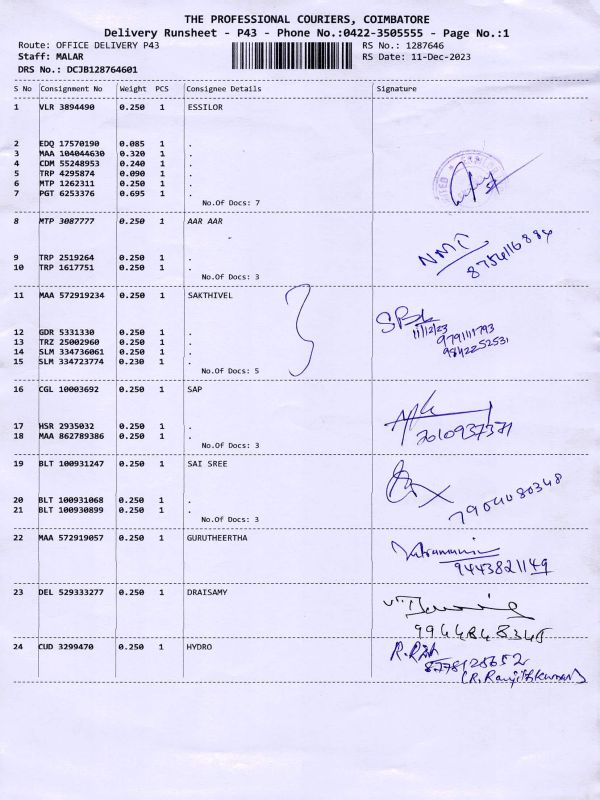 THE PROFESSIONAL COURIERS, COIMBATORE
Delivery Runsheet - P43 - Phone No.:0422-3505555 - Page No.:1
Route: OFFICE DELIVERY P43 RS No.: 1287646
Staff: MALAR RS Date: 11-Dec-2023
DRS No.: DCJB128764601
S No Consignment No Weight PCS Consignee Details Signature
1 VLR 3894490 0.250 1 ESSILOR
2 EDQ 17570190 0.085 1 .
3 MAA 104044630 0.320 1 .
4 CDM 55248953 0.240 1 .
5 TRP 4295874 0.090 1 .
6 MTP 1262311 0.250 1 .
7 PGT 6253376 0.695 1 .
No.Of Docs: 7
8 MTP 3087777 0.250 1 AAR AAR
NMT
8754116884
9 TRP 2519264 0.250 1 .
10 TRP 1617751 0.250 1 .
No.Of Docs: 3
11 MAA 572919234 0.250 1 SAKTHIVEL
11/12/23
9791111793
9842252531
12 GDR 5331330 0.250 1 .
13 TRZ 25002960 0.250 1 .
14 SLM 334736061 0.250 1 .
15 SLM 334723774 0.230 1 .
No.Of Docs: 5
16 CGL 10003692 0.250 1 SAP
17 HSR 2935032 0.250 1 .
18 MAA 862789386 0.250 1 .
No.Of Docs: 3
19 BLT 100931247 0.250 1 SAI SREE
20 BLT 100931068 0.250 1 .
21 BLT 100930899 0.250 1 .
7904080348
No.Of Docs: 3
22 MAA 572919057 0.250 1 GURUTHEERTHA
9443821149
23 DEL 529333277 0.250 1 DRAISAMY
9944848345
24 CUD 3299470 0.250 1 HYDRO
8778125652
(R. Ranjithkumar)